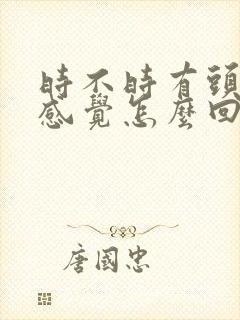 時不時有頭
感覺怎麼回
唐國忠